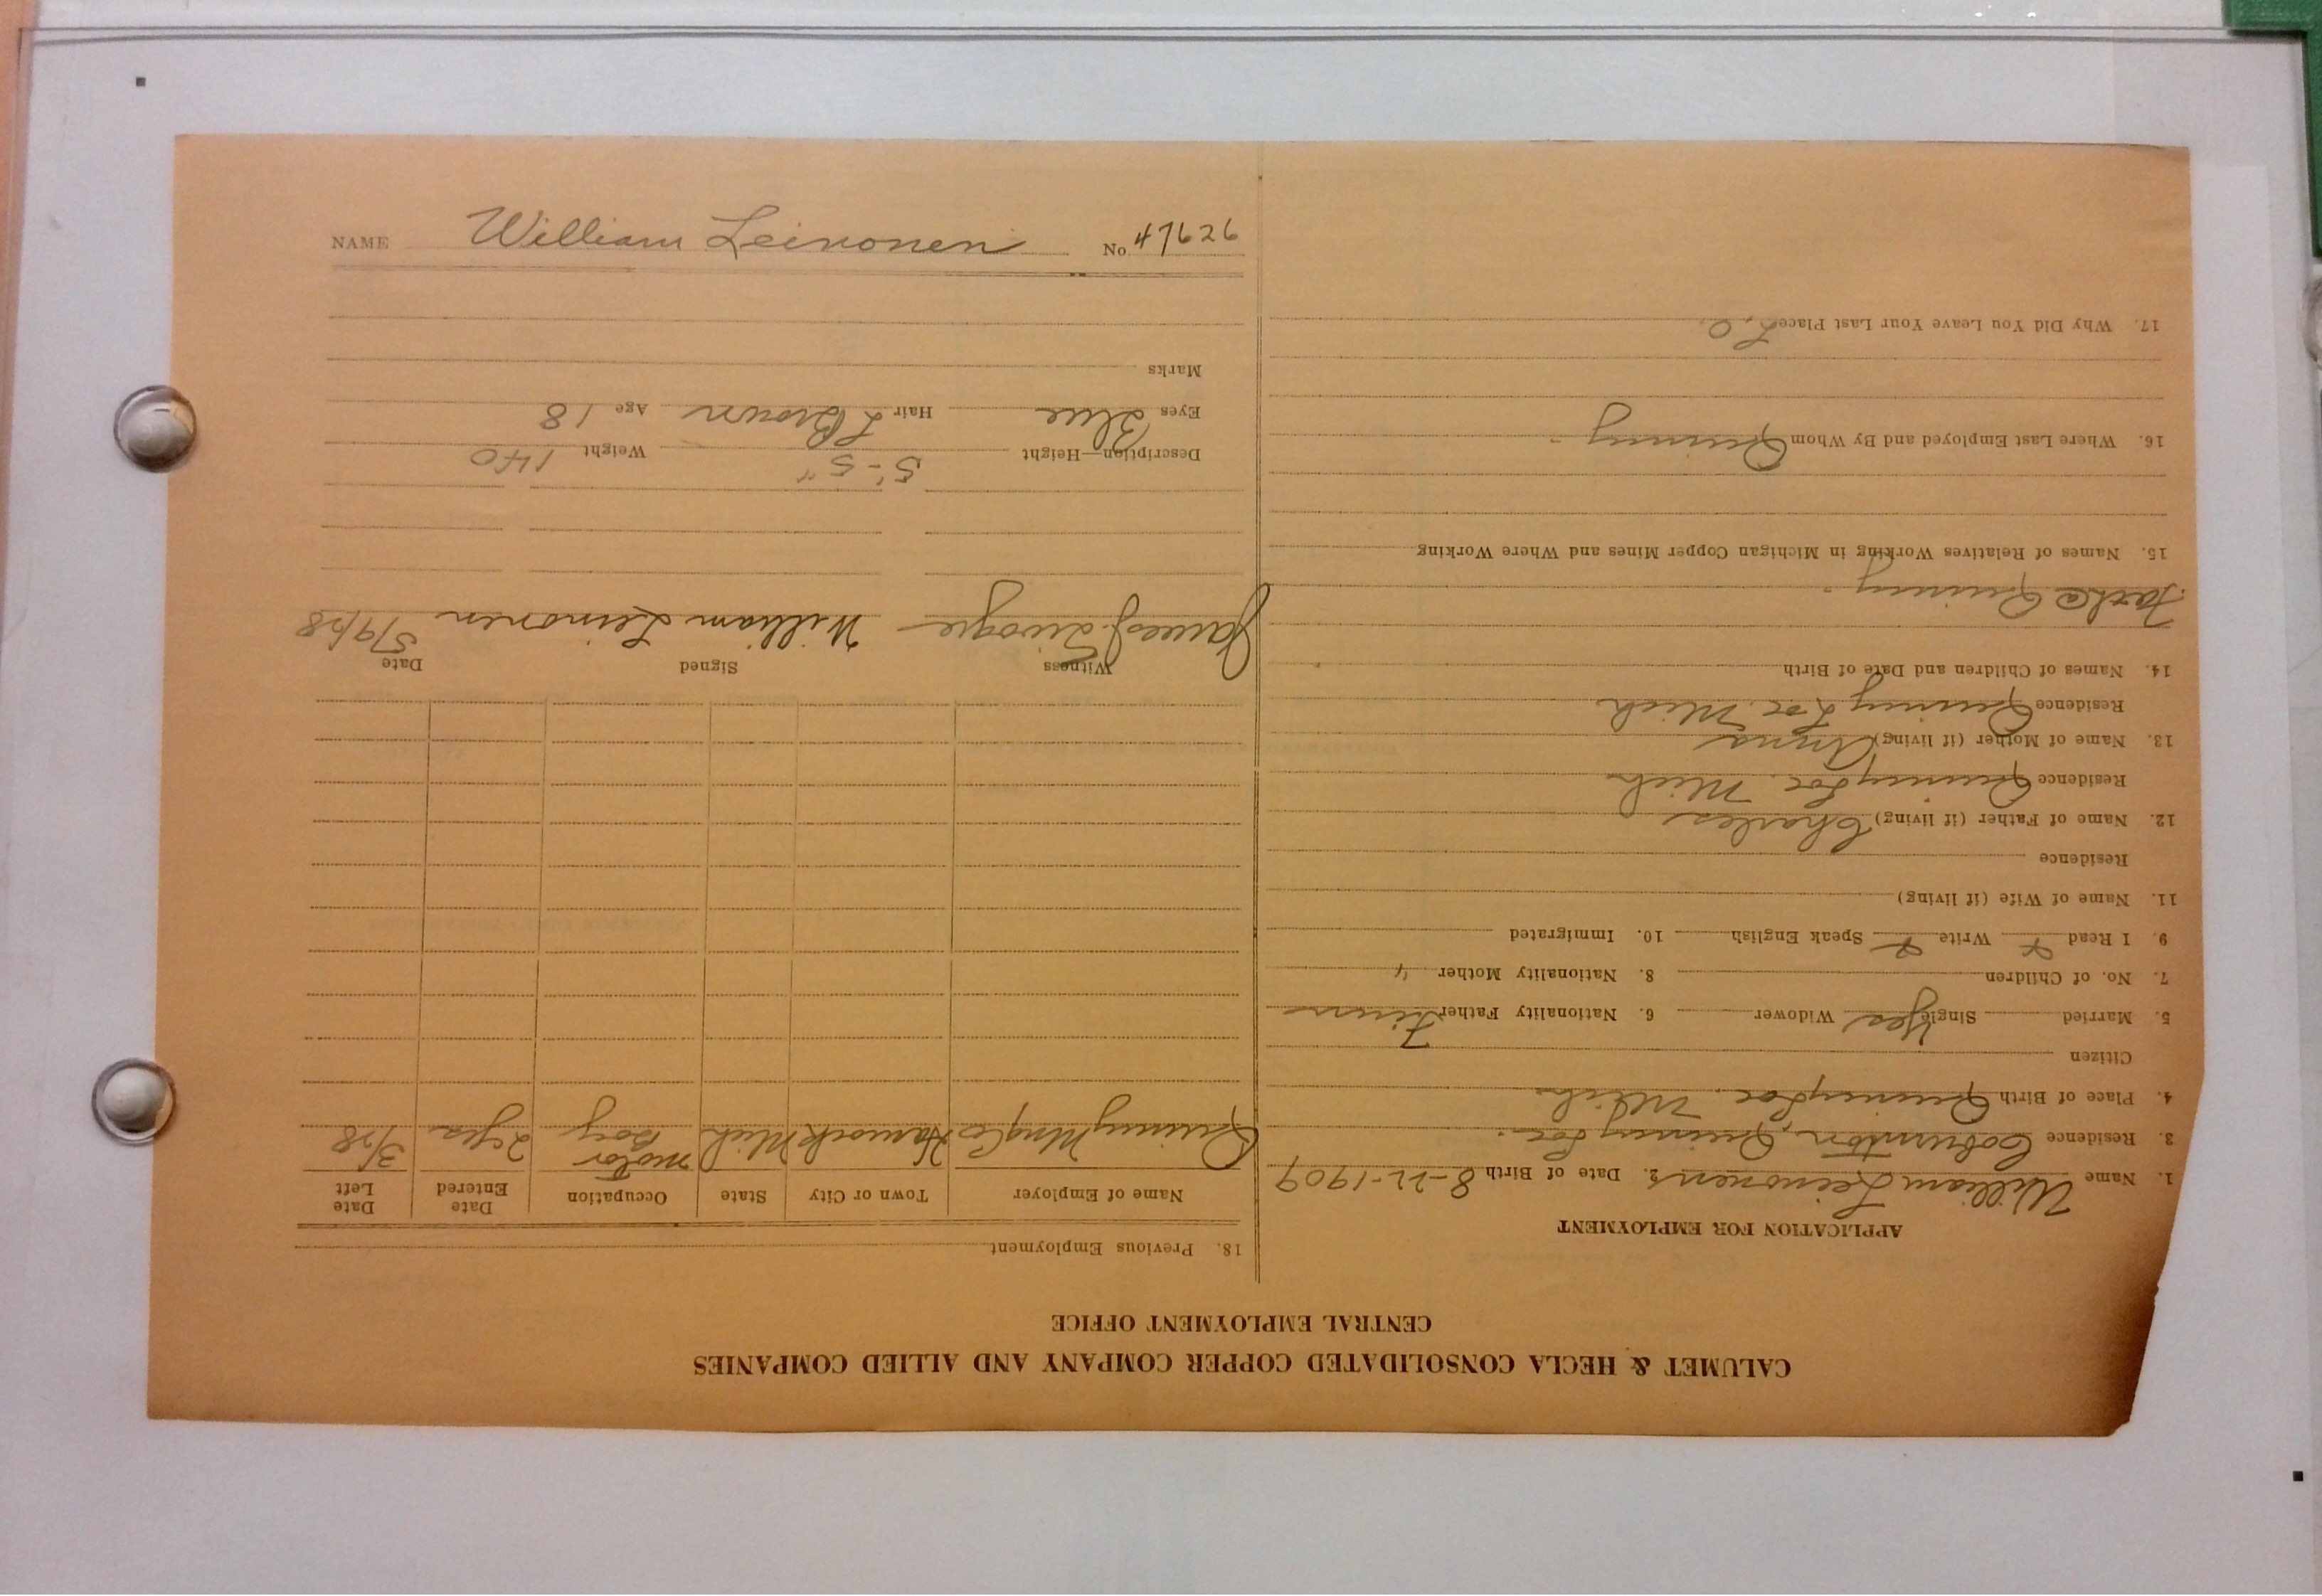 CALUMET & HECLA CONSOLIDATED COPPER COMPANY AND ALLIED COMPANIES
CENTRAL EMPLOYMENT OFFICE
APPLICATION FOR EMPLOYMENT
1. Name William Leinonen 2. Date of Birth 8-22-1909
3. Residence Coburntown, Quincy Loc.
4. Place of Birth Quincy Loc. Mich
Citizen
5. Married Single Yes Widower 6. Nationality Father Finn
7. No. of Children 8. Nationality Mother "
9. I Read Write Speak English 10. Immigrated
11. Name of Wife (if living)
Residence
12. Name of Father (if living) Charles
Residence Quincy Loc. Mich
13. Name of Mother (if living) Anna
Residence Quincy Loc. Mich
14. Names of Children and Date of Birth
Quincy
15. Names of Relatives Working in Michigan Copper Mines and Where Working
16. Where Last Employed and By Whom Quincy
17. Why Did You Leave Your Last Place L.O.
18. Previous Employment
Name of Employer Town or City State Occupation Date Entered Date Left
Quincy Mng Co Hancock Mich Motor Boy 2 yrs 3/28
Witness Signed Date
James J. William Leinonen 5/9/28
Description—Height 5'-5" Weight 140
Eyes Blue Hair L Brown Age 18
Marks
NAME William Leinonen No. 47626